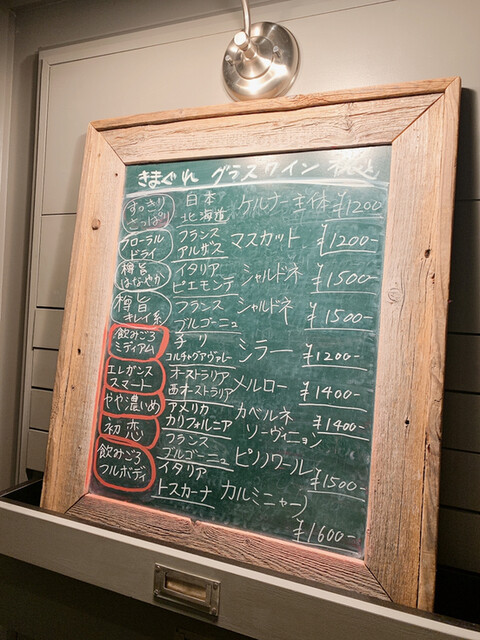 きまぐれ グラスワイン
すっきり
さっぱり
日本
北海道
ケルナー主体 ¥1200
フローラル
ドライ
フランス
アルザス
マスカット ¥1200-
樽旨
はなやか
イタリア
ピエモンテ
シャルドネ ¥1500
樽旨
キレイ系
フランス
ブルゴーニュ
シャルドネ ¥1500-
飲みごろ
ミディアム
チリ
コルチャグアヴァレー
シラー ¥1200-
エレガンス
スマート
オーストラリア
西オーストラリア
メルロー ¥1400-
やや濃いめ
アメリカ
カリフォルニア
カベルネ
ソーヴィニョン
¥1400-
初恋
フランス
ブルゴーニュ
ピノノワール
¥1500-
飲みごろ
フルボディ
イタリア
トスカーナ
カルミニャーノ
¥1600-